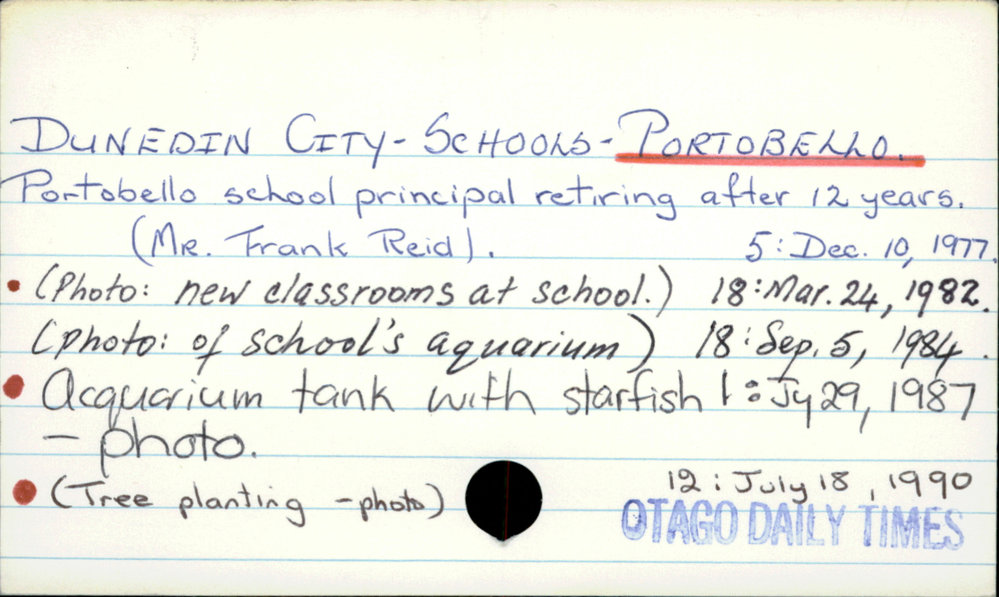 DUNEDIN CITY - SCHOOLS - PORTOBELLO.
Portobello school principal retiring after 12 years.
(Mr. Frank Reid). 5: Dec. 10, 1977.
• (Photo: new classrooms at school.) 18: Mar. 24, 1982.
(photo: of school's aquarium) 18: Sep. 5, 1984.
• Acquarium tank with starfish 1: Jy 29, 1987
- photo.
• (Tree planting - photo) 12: July 18, 1990
OTAGO DAILY TIMES